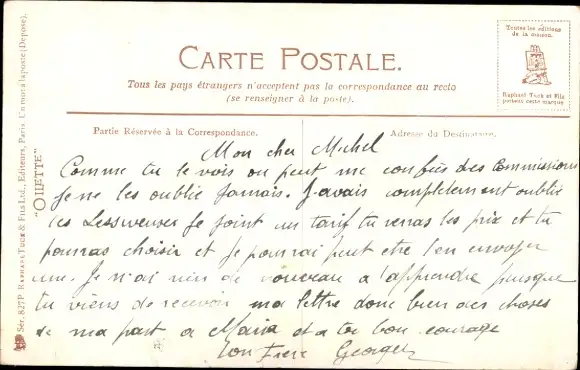 CARTE POSTALE.
Tous les pays étrangers n'acceptent pas la correspondance au recto
(se renseigner à la poste).
Toutes les éditions
de la maison
Raphael Tuck et Fils
portent cette marque
Partie Réservée à la Correspondance.
Adresse du Destinataire.
"OILETTE"
Sér. 827P. RAPHAEL TUCK & FILS Ltd., Editeurs, Paris. Un mot à la poste (Déposé).
Mon cher Michel
Comme tu le vois on peut me confier des commissions
je ne les oublie jamais. J'avais completement oublié
les je joint un tarif tu verras les prix et tu
pourras choisir et je pourrai peut etre t'en envoyer
une. Je n'ai rien de nouveau a t'apprendre puisque
tu viens de recevoir ma lettre donc bien des choses
de ma part a Maria et a toi bon courage
ton frere Georges